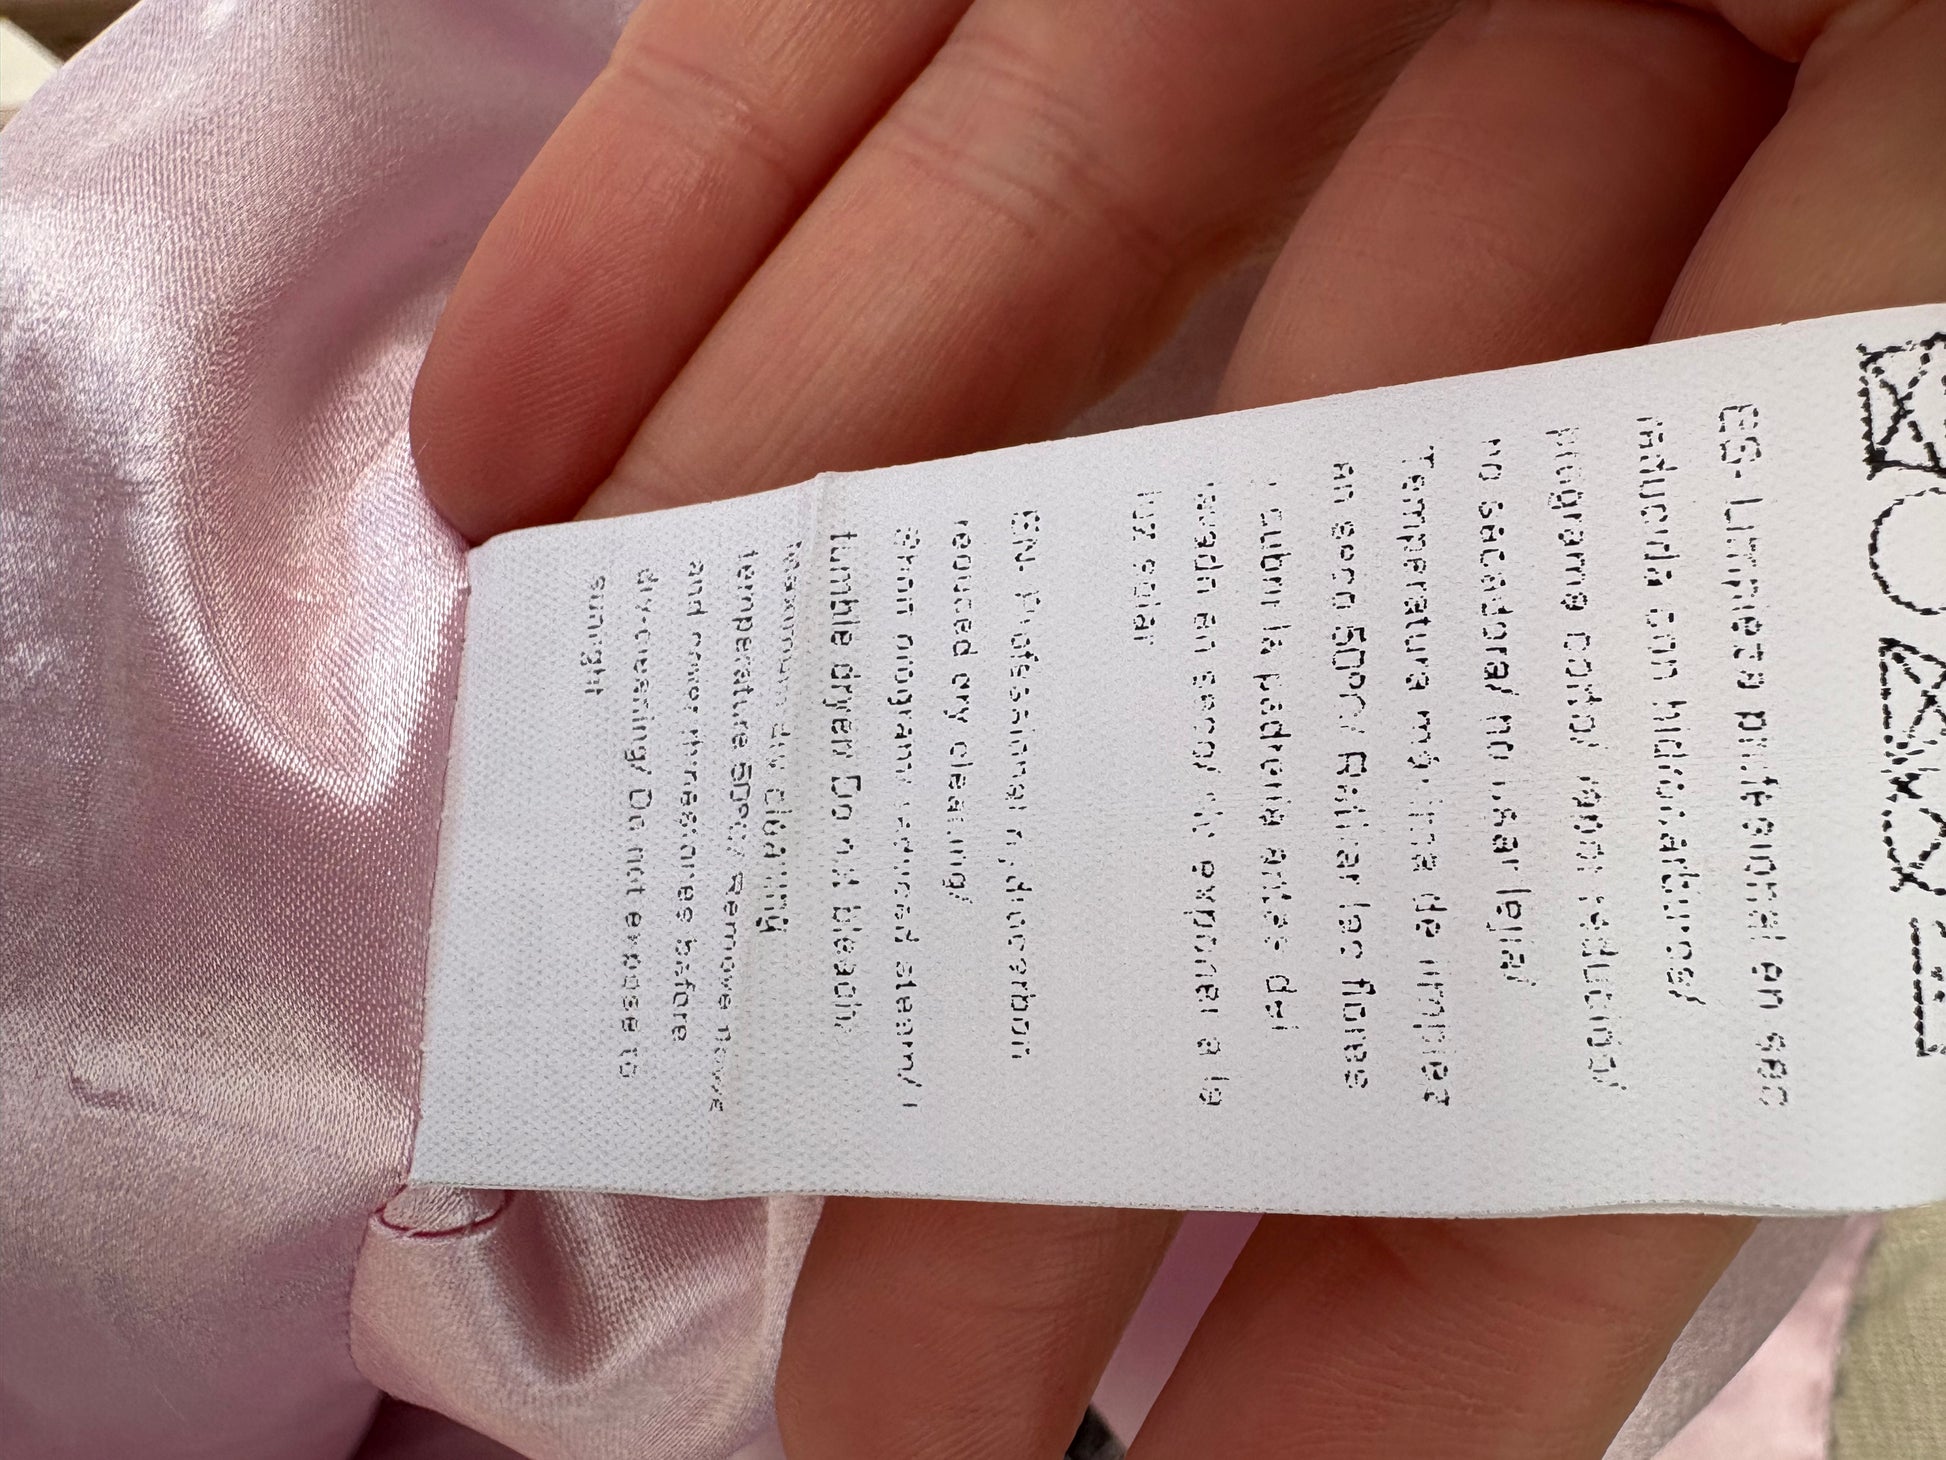 ES- Limpieza profesional en seco
reducida con hidrocarburos/
programa corto/ vapor reducido/
no secadora/ no usar lejía/
Temperatura máxima de limpieza
en seco 50ºC/ Retirar las flores
y cubrir la pedrería antes del
lavado en seco/ No exponer a la
luz solar
EN- Professional hydrocarbon
reduced dry cleaning/
Short program/ reduced steam/
tumble dryer/ Do not bleach/
Maximum dry cleaning
temperature 50ºC/ Remove flowers
and cover rhinestones before
dry-cleaning/ Do not expose to
sunlight